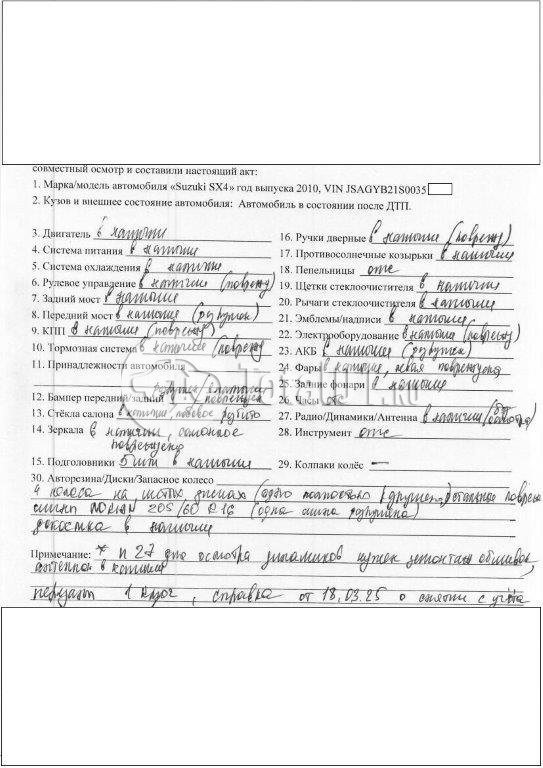 совместный осмотр и составили настоящий акт:
1. Марка/модель автомобиля «Suzuki SX4» год выпуска 2010, VIN JSAGYB21S0035
2. Кузов и внешнее состояние автомобиля: Автомобиль в состоянии после ДТП.
3. Двигатель в наличии
4. Система питания в наличии
5. Система охлаждения в наличии
6. Рулевое управление в наличии (поврежд)
7. Задний мост в наличии
8. Передний мост в наличии
9. КПП в наличии (поврежд)
10. Тормозная система в наличии (поврежд
11. Принадлежности автомобиля
12. Бампер передний/задний
13. Стёкла салона в наличии, лобовое
14. Зеркала в наличии,
повреждено
15. Подголовники 5 шт в наличии
16. Ручки дверные в наличии (поврежд)
17. Противосолнечные козырьки в наличии
18. Пепельницы отс
19. Щетки стеклоочистителя в наличии
20. Рычаги стеклоочистителя в наличии
21. Эмблемы/надписи в наличии
22. Электрооборудование в наличии (поврежд)
23. АКБ в наличии
24. Фары в наличии, левая повреждена
25. Задние фонари в наличии
26. Часы отс
27. Радио/Динамики/Антенна в наличии
28. Инструмент отс
29. Колпаки колёс —
30. Авторезина/Диски/Запасное колесо
4 колеса на литых дисках (одно полностью
205/60 R16 (одна шина разрушена)
докатка в наличии
Примечание: * п 27 для осмотра динамиков нужен демонтаж обшивок,
антенна в наличии
передан 1 ключ, справка от 18.03.25 о снятии с учёта